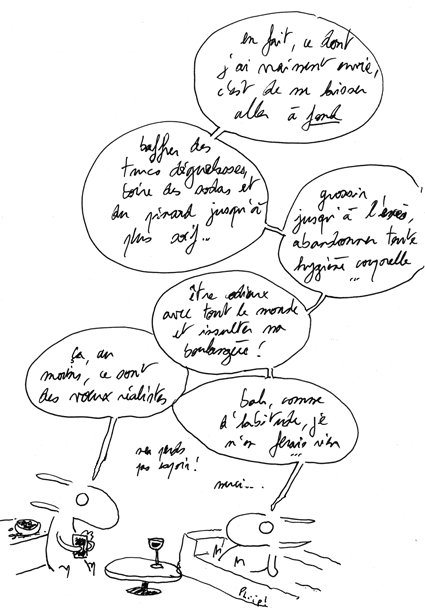 en fait, ce dont
j'ai vraiment envie,
c'est de me laisser
aller à fond
baffrer des
trucs dégueulasses,
boire des sodas et
du pinard jusqu'à
plus soif...
grossir
jusqu'à l'excès,
abandonner toute
hygiène corporelle
...
être odieux
avec tout le monde
et insulter ma
boulangère !
ça, au
moins, ce sont
des vœux réalistes
bah, comme
d'habitude, je
n'en ferais rien
...
perds
pas espoir !
merci...